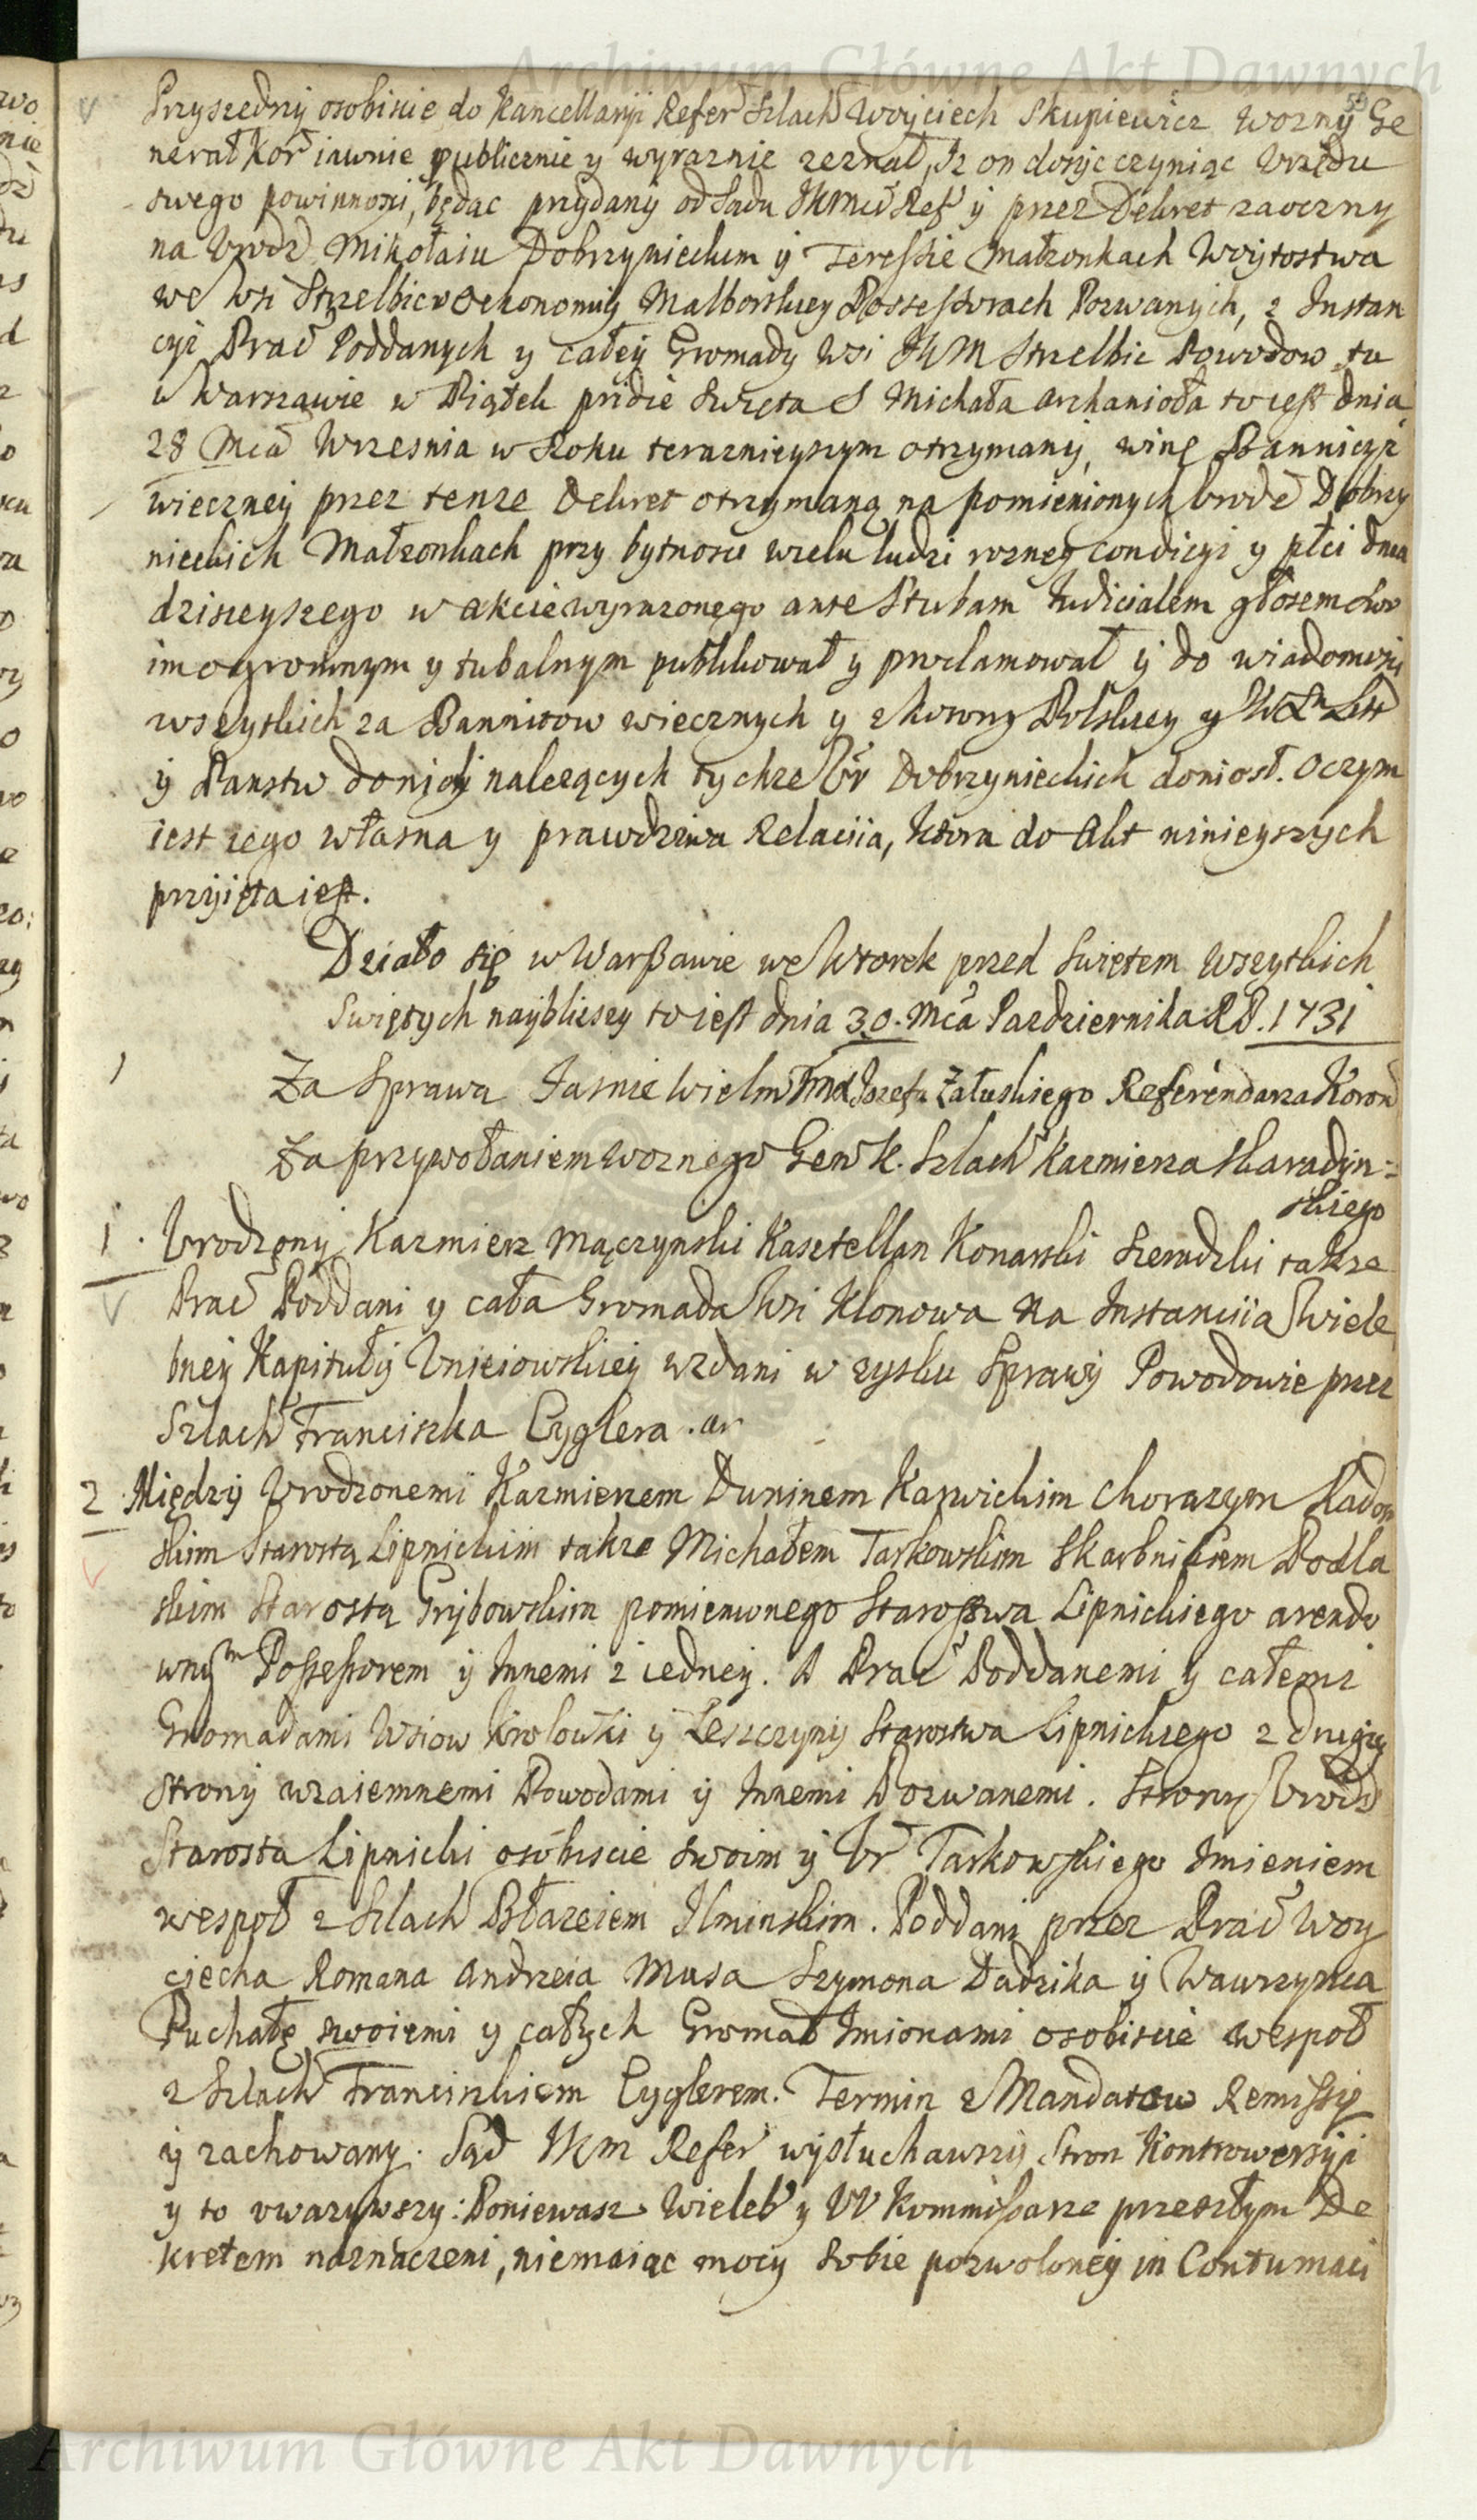 Archiwum Główne Akt Dawnych
Przyszedszy osobiscie do Kancellaryi Refer Szlach Woyciech Skupiewicz Wozny Ge
nerał Kor iawnie publicznie y wyraznie zeznał, Iz on dosyc czyniąc Urzędu
swego powinnosci, będąc przydany od Sadu JKMci Ref y przez Dekret zaoczny
na Urodz Mikołaiu Dobrzynieckim y Teressie Małzonkach Woytostwa
we Wsi Strzelbice Oekonomiy Malborskiey Possessorach Pozwanych, z Instan
cyi Prac Poddanych y całey Gromady Wsi JKM Strzelbic Powodow, tu
w Warszawie w Piątek pridie Swięta S Michała Archanioła to iest dnia
28 Mca Wrzesnia w Roku teraznieyszym otrzymany, winę Banniczyi
wieczney przez tenze Dekret otrzymaną na pomienionych Urodz Dobrzy
nieckich Małzonkach przy bytnosci wielu ludzi rozney condicyi y płci dnia
dzisieyszego w akcie wyrazonego ante Stubam Judicialem głosem swo
im ogromnym y tubalnym publikował y proclamował y do wiadomosci
wszytkich za Bannitow wiecznych y z Korony Polskiey y W X Litt
y Panstw do niey nalezących tychze Ur Dobrzynieckich doniosł. O czym
iest iego własna y prawdziwa Relaciia, ktora do Akt ninieyszych
przyięta iest.
Działo się w Warszawie we Wtorek przed Swiętem Wszytkich
Swiętych nayblizszy to iest dnia 30. Mca Pazdziernika RP. 1731
Za Sprawą Jasnie Wielm Jmci Jozefa Załuskiego Referendarza Koron
Za przywołaniem Woznego Gen K. Szlach Kazmierza Skaradzin=
skiego
1. Urodzony Kazmierz Mączynski Kasztellan Konarski Sieradzki takze
Prac Poddani y cała Gromada Wsi Klonowa na Instanciia Wiele
bney Kapituły Unieiowskiey wzdani w zysku Sprawy Powodowie przez
Szlach Franciszka Cyglera. ar
2 Między Urodzonemi Kazmierzem Duninem Karwickim Chorazym Radom
skim Starostą Lipnickim takze Michałem Tarkowskim Skarbnikiem Podla
skim Starostą Grybowskim pomienionego Starostwa Lipnickiego arendo
wnym Possessorem y Innemi z iedney. A Prac Poddanemi y całemi
Gromadami Wsiow Krolowki y Leszczyny Starostwa Lipnickiego z drugiey
strony wzaiemnemi Powodami y Innemi Pozwanemi. Strony Urodz
Starosta Lipnicki osobiscie swoim y Ur Tarkowskiego Imieniem
wespoł z Szlach Błazeiem Ilminskim. Poddani przez Prac Woy
ciecha Romana Andrzeia Musa Szymona Dudzika y Wawrzynca
Puchałę swoiemi y całych Gromad Imionami osobiscie wespoł
z Szlach Franciszkiem Cyglerem. Termin z Mandatow Remissiy
y zachowany. Sąd JKM Refer wysłuchawszy Stron Kontrowersyi
y to uwazywszy: Poniewasz Wieleb y UU Kommissarze przeszłym De
kretem naznaczeni, niemaiąc mocy sobie pozwoloney in Contumaci
Archiwum Główne Akt Dawnych